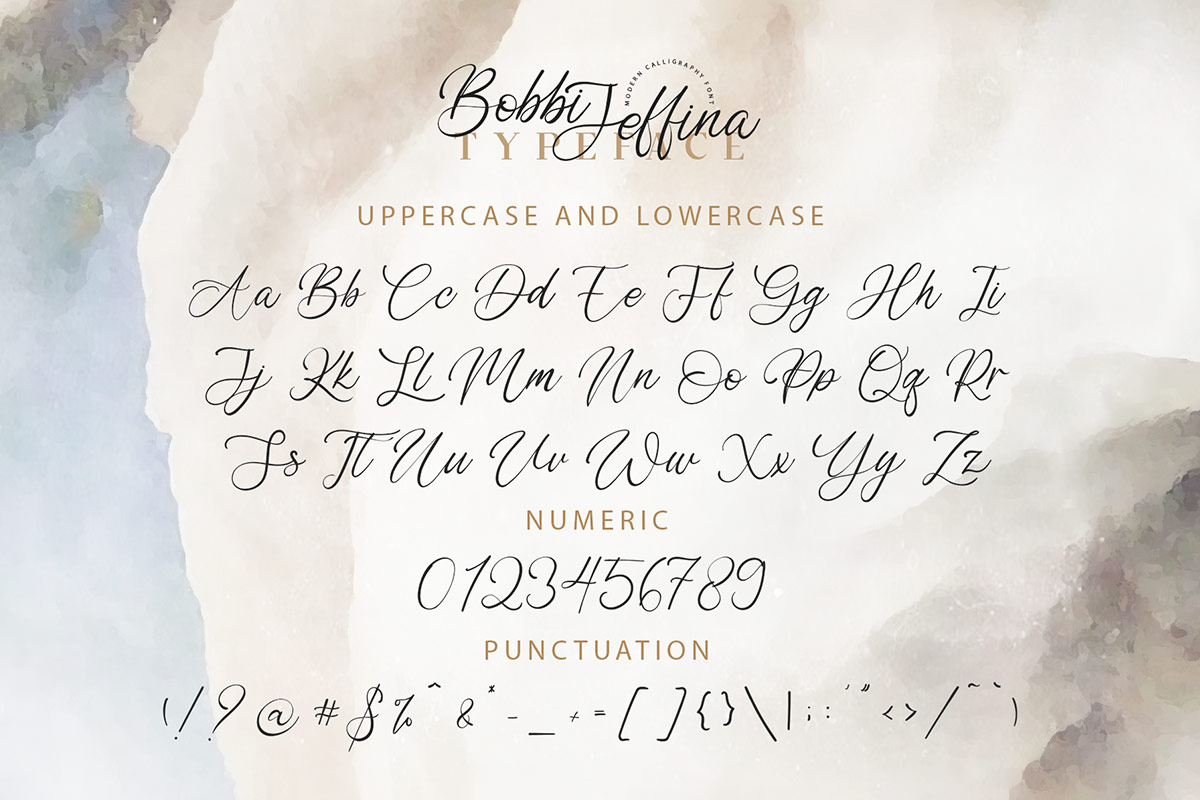 Bobbi Jeffina
MODERN CALLIGRAPHY FONT
TYPEFACE
UPPERCASE AND LOWERCASE
Aa Bb Cc Dd Ee Ff Gg Hh Ii
Jj Kk Ll Mm Nn Oo Pp Qq Rr
Ss Tt Uu Vv Ww Xx Yy Zz
NUMERIC
0123456789
PUNCTUATION
(!?@#$%^&*-_+=[]{}\|;:'"<>/~`)